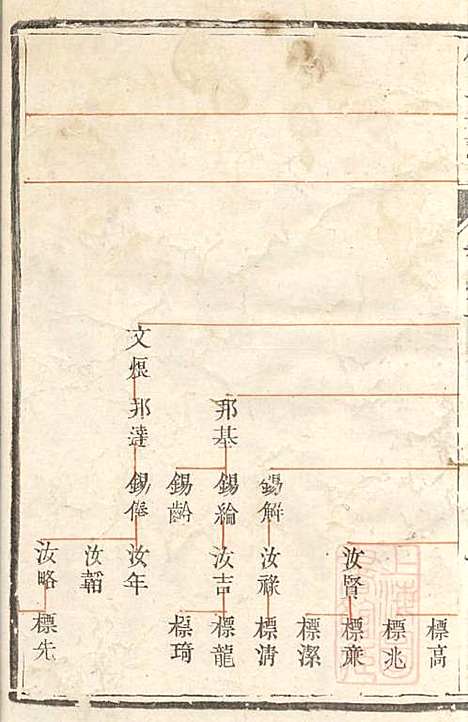 文煨
邦基
邦達
錫解
錫綸
錫齡
錫僊
汝賢
汝祿
汝吉
汝年
汝韜
汝略
標高
標兆
標秉
標潔
標清
標龍
標琦
標先